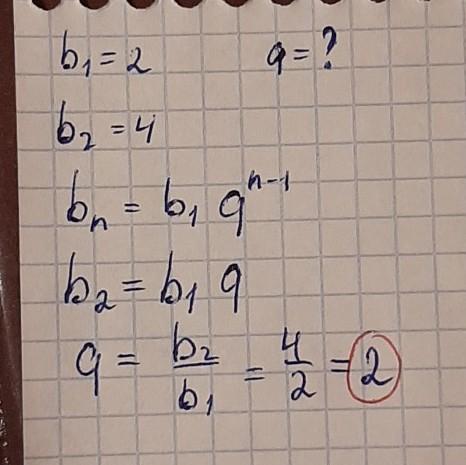 b₁ = 2 q = ?
b₂ = 4
bₙ = b₁ qⁿ⁻¹
b₂ = b₁ q
q = b₂/b₁ = 4/2 = 2